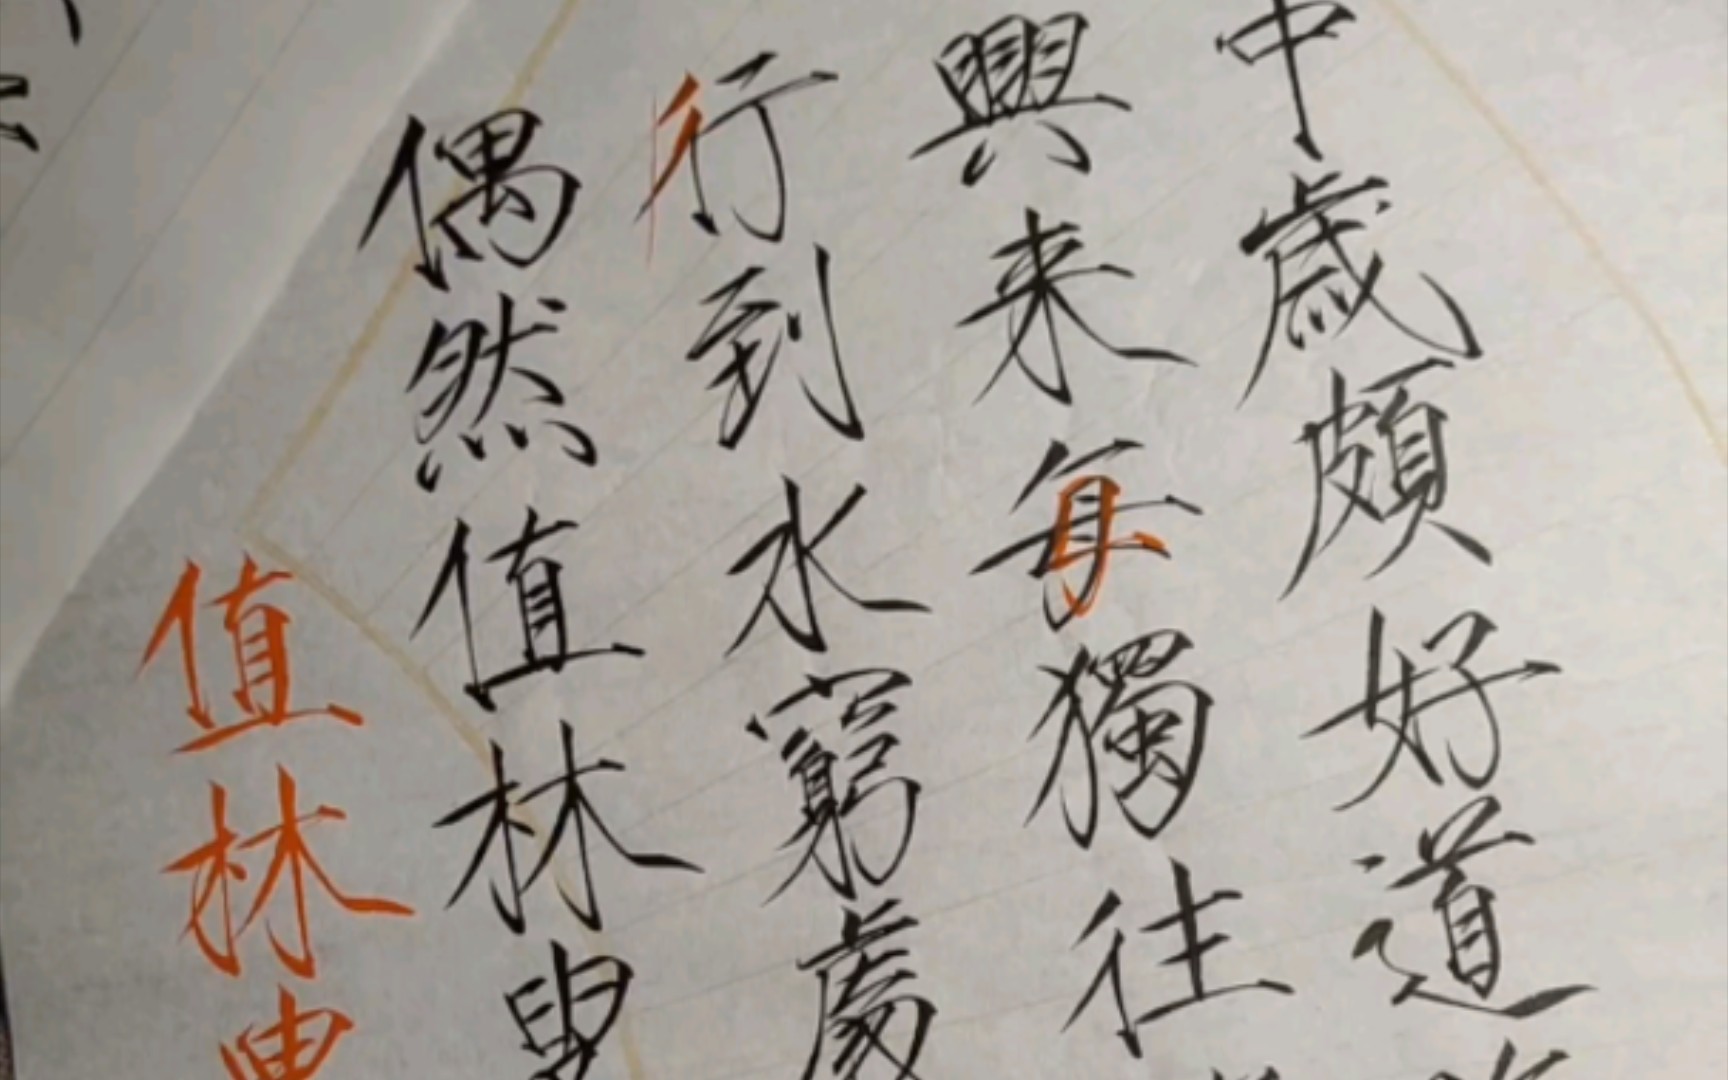 中歲頗好道
興来每獨往
行到水窮處
偶然值林叟
值林叟